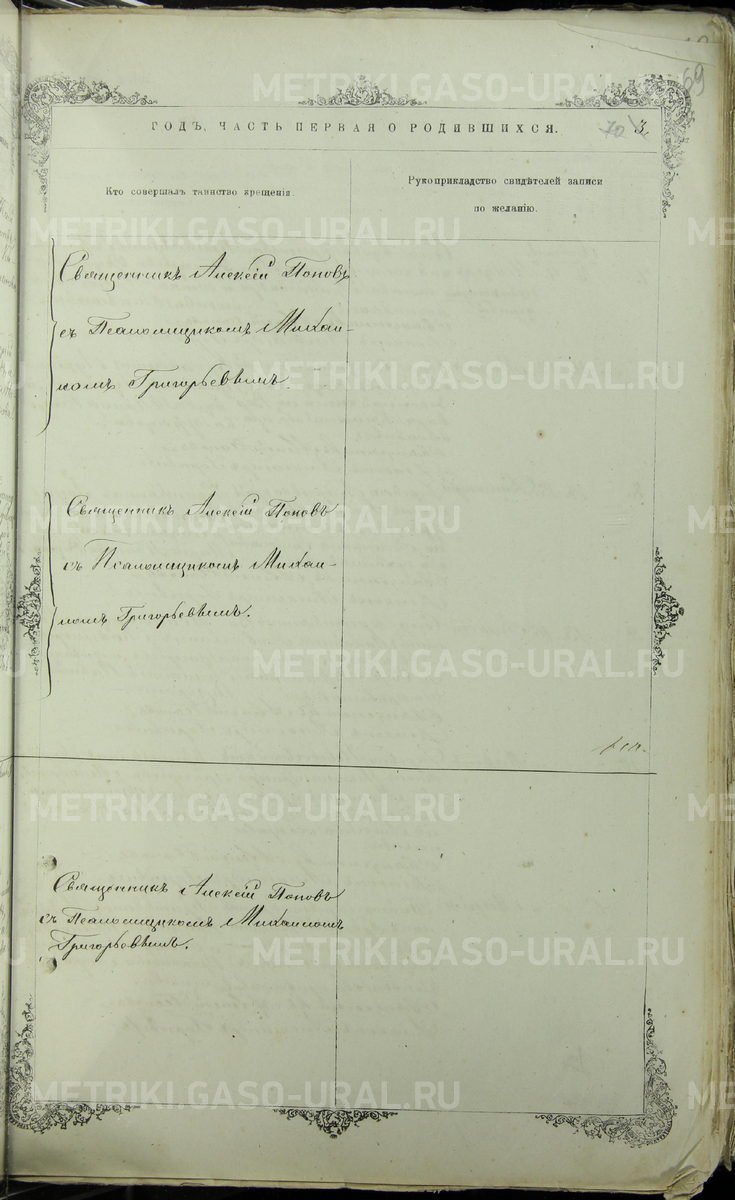 69
ГОДЪ, ЧАСТЬ ПЕРВАЯ О РОДИВШИХСЯ.
70
3.
Кто совершалъ таинство крещенія.
Рукоприкладство свидѣтелей записи
по желанію.
Священникъ Алексій Поповъ
съ Псаломщикомъ Михаи-
ломъ Григорьевымъ.
Священникъ Алексій Поповъ
съ Псаломщикомъ Михаи-
ломъ Григорьевымъ.
Священникъ Алексій Поповъ
съ Псаломщикомъ Михаиломъ
Григорьевымъ.
METRIKI.GASO-URAL.RU